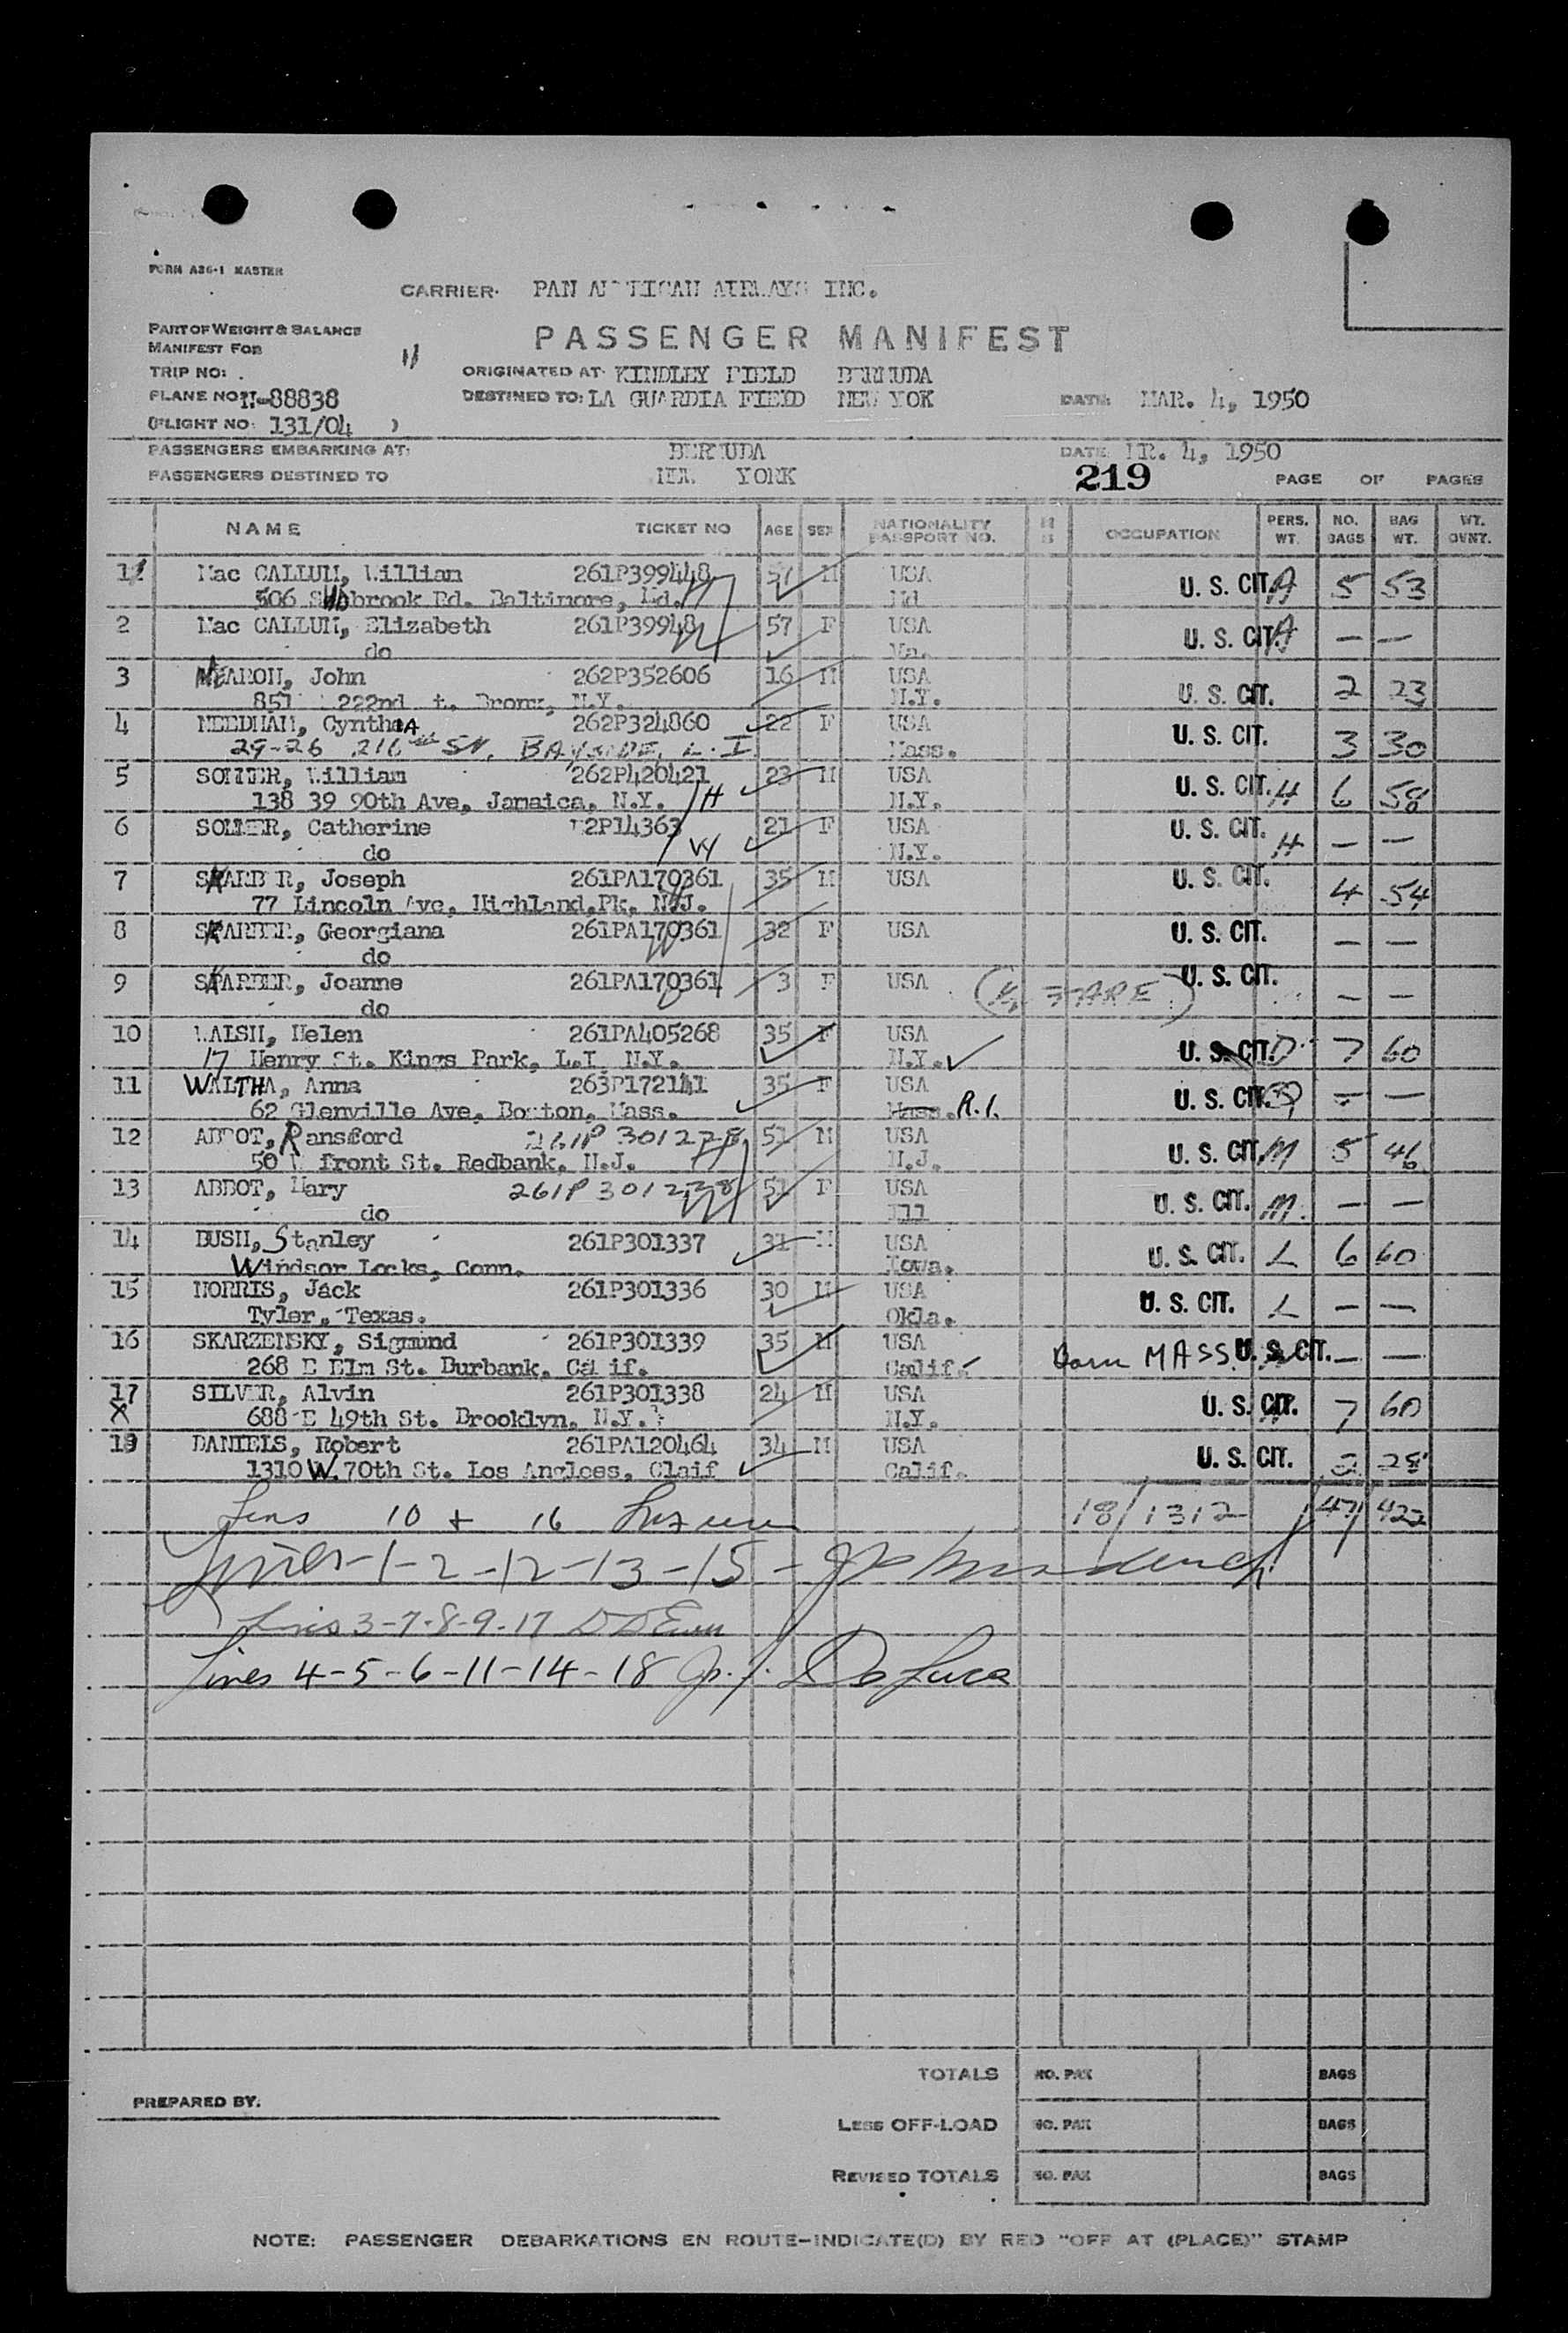 FORM A36-1 MASTER
CARRIER: PAN AMERICAN AIRWAYS INC.
PART OF WEIGHT & BALANCE
MANIFEST FOR
PASSENGER MANIFEST
TRIP NO:
ORIGINATED AT: KINDLEY FIELD BERMUDA
PLANE NO: N-88838
DESTINED TO: LA GUARDIA FIELD NEW YOK
DATE: MAR. 4, 1950
(FLIGHT NO: 131/04 )
PASSENGERS EMBARKING AT: BERMUDA
DATE 4, 1950
PASSENGERS DESTINED TO YORK
219 PAGE OF PAGES
NAME TICKET NO AGE SEX NATIONALITY PASSPORT NO. OCCUPATION PERS. WT. NO. BAGS BAG WT. WT. OVNT.
1 Mac CALLUM, William 261P399448 57 M USA U. S. CIT. A 5 53
506 brook Rd. Baltimore, Md. H Md
2 Mac CALLUM, Elizabeth 261P39948 57 F USA U. S. CIT. A — —
do W
3 John 262P352606 16 M USA U. S. CIT. 2 23
222nd Bronx, N.Y. N.Y.
4 NEEDHAM, CynthIA 262P324860 22 F USA U. S. CIT. 3 30
29-26 216th St, BAYSIDE, L. I Mass.
5 SOMMER, William 262P420421 23 M USA U. S. CIT. H 6 58
138 39 90th Ave, Jamaica, N.Y. H N.Y.
6 SOMMER, Catherine 2P14363 21 F USA U. S. CIT. H — —
do W N.Y.
7 SPARBER, Joseph 261PA170361 35 M USA U. S. CIT. 4 54
77 Lincoln Ave, Highland,Pk, N.J.
8 SPARBER, Georgiana 261PA170361 32 F USA U. S. CIT. — —
do W
9 SPARBER, Joanne 261PA170361 3 F USA U. S. CIT. — —
do FARE
10 WALSH, Helen 261PA405268 35 F USA U. S. CIT. D 7 60
17 Henry St. Kings Park, L.I. N.Y. N.Y.
11 WALTHA, Anna 263P172141 35 F USA U. S. CIT. — —
62 Glenville Ave, Boston, Mass. Mass. R.I.
12 ABBOT, Ransford 261P 301228 51 M USA U. S. CIT. M 5 46
50 front St. Redbank, N.J. H N.J.
13 ABBOT, Mary 261P 301228 51 F USA U. S. CIT. M. — —
do W Ill
14 BUSH, Stanley 261P301337 31 M USA U. S. CIT. L 6 60
Windsor Locks, Conn. Iowa.
15 NORRIS, Jack 261P301336 30 M USA U. S. CIT. L — —
Tyler, Texas. Okla.
16 SKARZENSKY, Sigmund 261P301339 35 M USA Born MASS. U. S. CIT. — —
268 E Elm St. Burbank, Calif. Calif.
17 SILVER, Alvin 261P301338 24 M USA U. S. CIT. 7 60
X 688 E 49th St. Brooklyn, N.Y. N.Y.
18 DANIELS, Robert 261PA120464 34 M USA U. S. CIT. 2 28
1310 W. 70th St. Los Angloes, Claif Calif.
Lines 10 + 16 18/1312 47 422
Lines-1-2-12-13-15-
Lines 3-7-8-9-17
Lines 4-5-6-11-14-18 DeLuca
TOTALS NO. PAX BAGS
PREPARED BY:
LESS OFF-LOAD NO. PAX BAGS
REVISED TOTALS NO. PAX BAGS
NOTE: PASSENGER DEBARKATIONS EN ROUTE-INDICATE(D) BY RED "OFF AT (PLACE)" STAMP